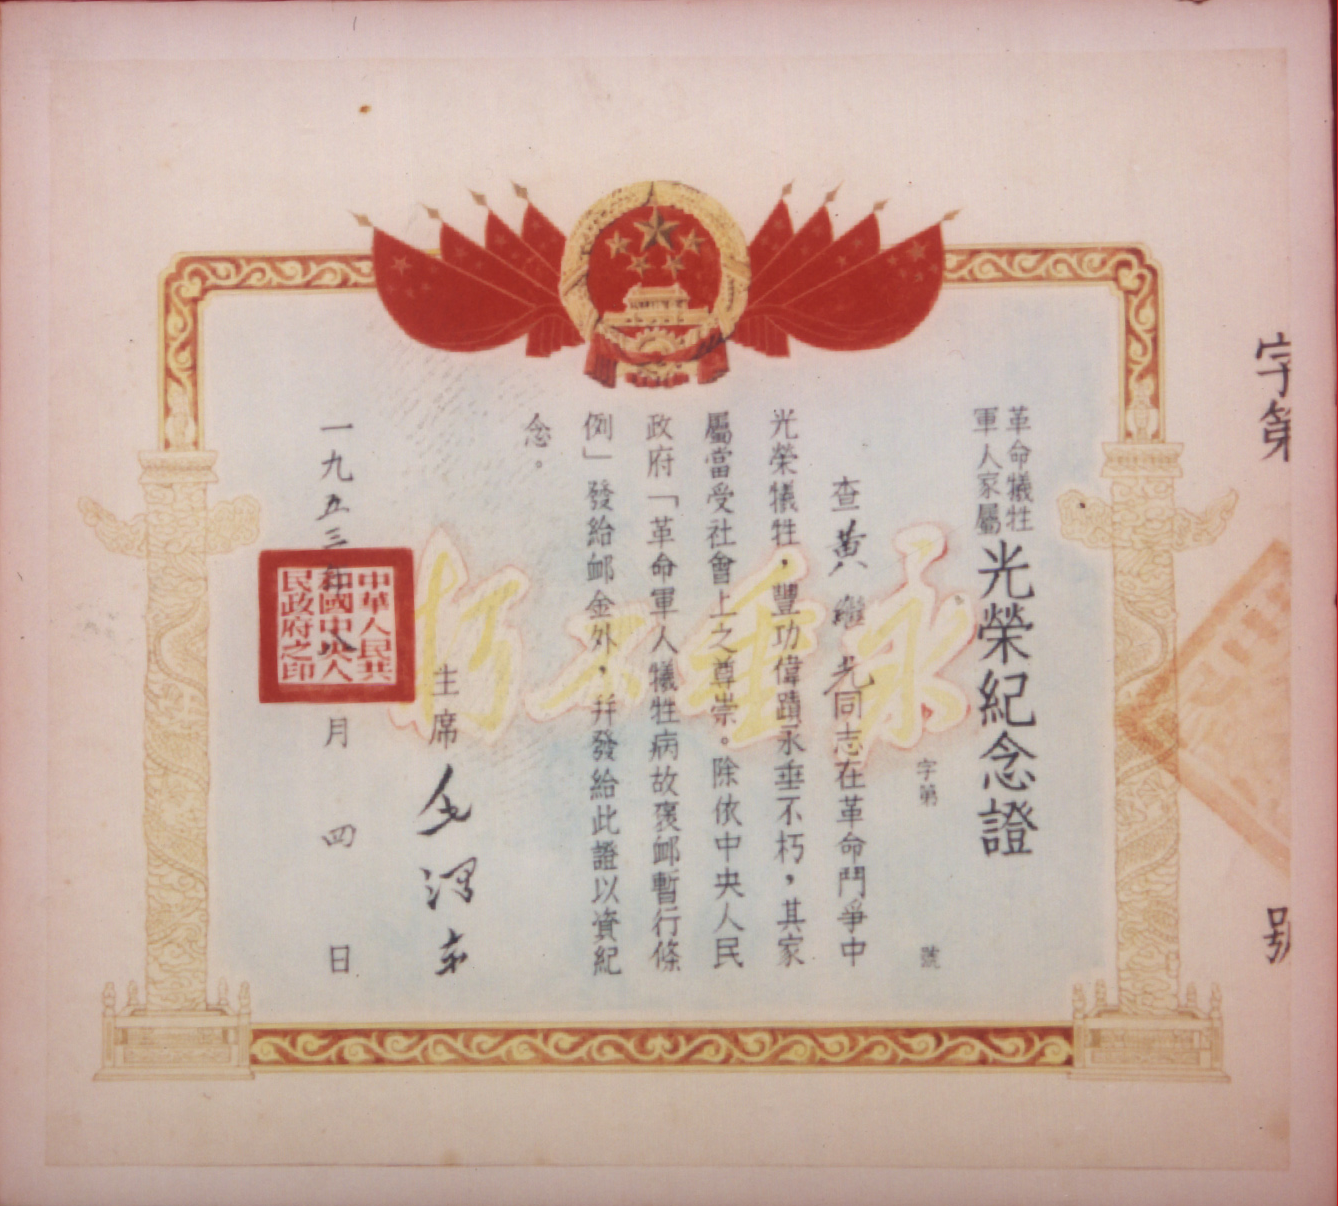 字第
號
革命犧牲
軍人家屬
光榮紀念證
字第 號
查黃繼光同志在革命鬥爭中
光榮犧牲,豐功偉蹟永垂不朽,其家
屬當受社會上之尊崇。除依中央人民
政府「革命軍人犧牲病故褒卹暫行條
例」發給卹金外,幷發給此證以資紀
念。
主席毛澤东
一九五三年 月四日
中華人民共
和國中央人
民政府之印
永垂不朽